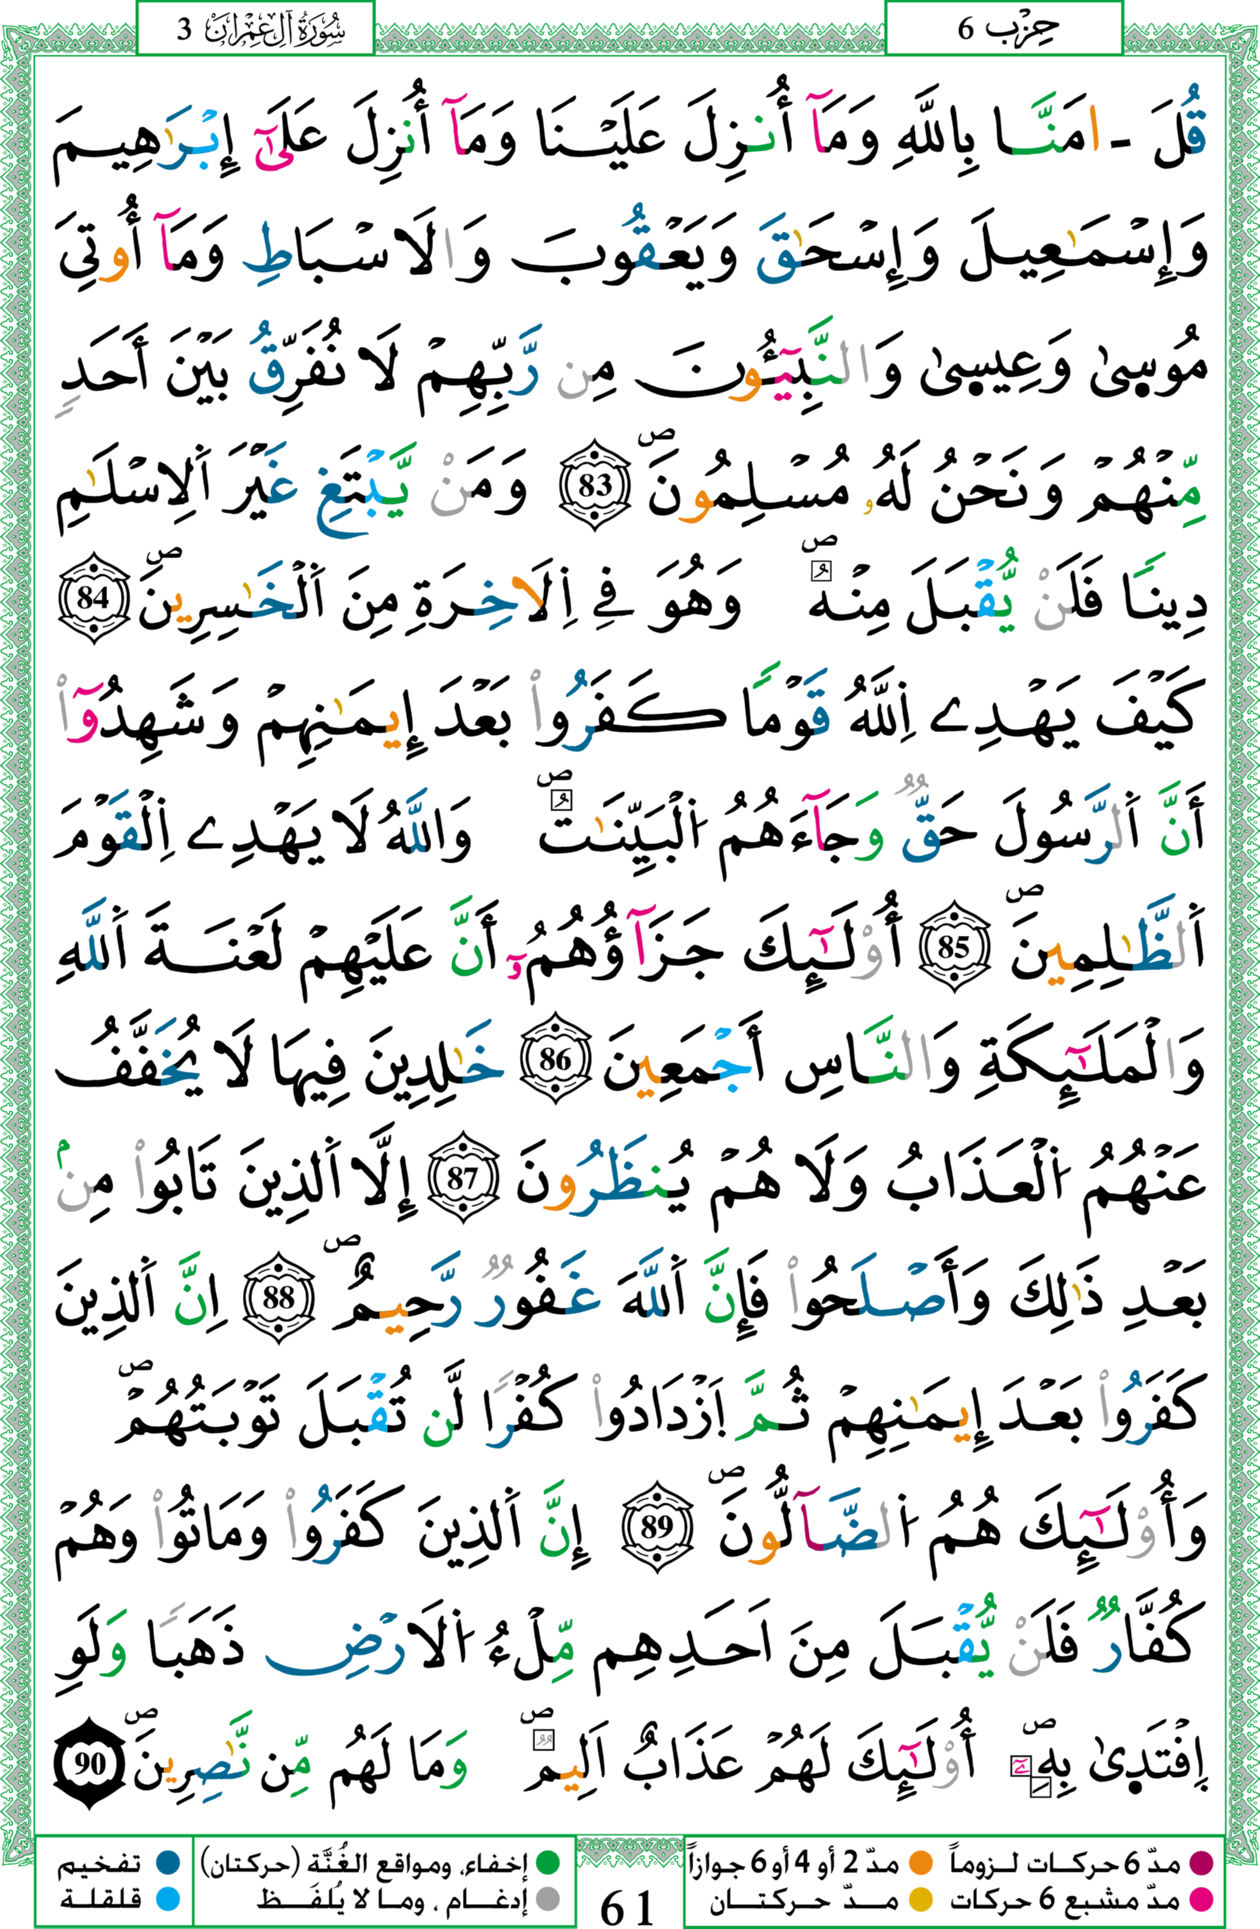 حِزْب 6
سُورَةُ آلِ عِمْرَانَ 3
قُلَ ـ امَنَّا بِاللَّهِ وَمَآ أُنزِلَ عَلَيْنَا وَمَآ أُنزِلَ عَلَىٰٓ إِبْرَٰهِيمَ
وَإِسْمَٰعِيلَ وَإِسْحَٰقَ وَيَعْقُوبَ وَالَاسْبَاطِ وَمَآ أُوتِيَ
مُوسىٰ وَعِيسىٰ وَالنَّبِيٓـُٔونَ مِن رَّبِّهِمْ لَا نُفَرِّقُ بَيْنَ أَحَدٍ
مِّنْهُمْ وَنَحْنُ لَهُۥ مُسْلِمُونَ ص 83 وَمَنْ يَّبْتَغِ غَيْرَ اَلِاسْلَٰمِ
دِينًا فَلَنْ يُّقْبَلَ مِنْهُ ص وَهُوَ فِے اِلَاخِرَةِ مِنَ اَلْخَٰسِرِينَ ص 84
كَيْفَ يَهْدِے اِللَّهُ قَوْمًا كَفَرُواْ بَعْدَ إِيمَٰنِهِمْ وَشَهِدُوٓاْ
أَنَّ اَلرَّسُولَ حَقٌّ وَجَآءَهُمُ اُلْبَيِّنَٰتُ ص وَاللَّهُ لَا يَهْدِے اِلْقَوْمَ
اَلظَّٰلِمِينَ ص 85 أُوْلَٰٓئِكَ جَزَآؤُهُمُۥٓ أَنَّ عَلَيْهِمْ لَعْنَةَ اَللَّهِ
وَالْمَلَٰٓئِكَةِ وَالنَّاسِ أَجْمَعِينَ 86 خَٰلِدِينَ فِيهَا لَا يُخَفَّفُ
عَنْهُمُ اُلْعَذَابُ وَلَا هُمْ يُنظَرُونَ 87 إِلَّا اَلذِينَ تَابُواْ مِنۢ
بَعْدِ ذَٰلِكَ وَأَصْلَحُواْ فَإِنَّ اَللَّهَ غَفُورٌ رَّحِيمٌ ص 88 اِنَّ اَلذِينَ
كَفَرُواْ بَعْدَ إِيمَٰنِهِمْ ثُمَّ اَزْدَادُواْ كُفْرًا لَّن تُقْبَلَ تَوْبَتُهُمْ ص
وَأُوْلَٰٓئِكَ هُمُ اُلضَّآلُّونَ ص 89 إِنَّ اَلذِينَ كَفَرُواْ وَمَاتُواْ وَهُمْ
كُفَّارٌ فَلَنْ يُّقْبَلَ مِنَ اَحَدِهِم مِّلْءُ اُلَارْضِ ذَهَبًا وَلَوِ
اِفْتَدىٰ بِهِۦٓ ص أُوْلَٰٓئِكَ لَهُمْ عَذَابٌ اَلِيمٌ ص وَمَا لَهُم مِّن نَّٰصِرِينَ ص 90
مدّ 6 حركات لـزوماً مدّ 2 أو 4 أو 6 جوازاً
مدّ مشبع 6 حركات مـدّ حـركتـان
61
إخفاء، ومواقع الغُنَّة (حركتان) تفخيم
إدغـام ، ومـا لا يُلفَـظ قلقلـة